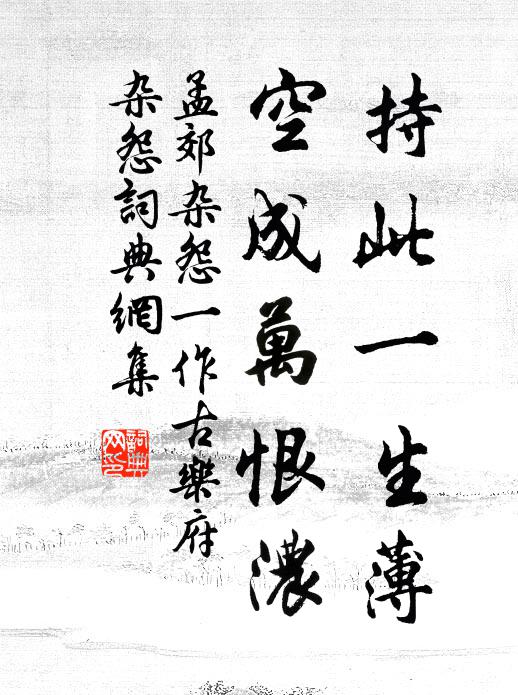 持此一生薄
空成萬恨濃
孟郊杂怨一作古樂府
杂怨詞典網集
詞典网印